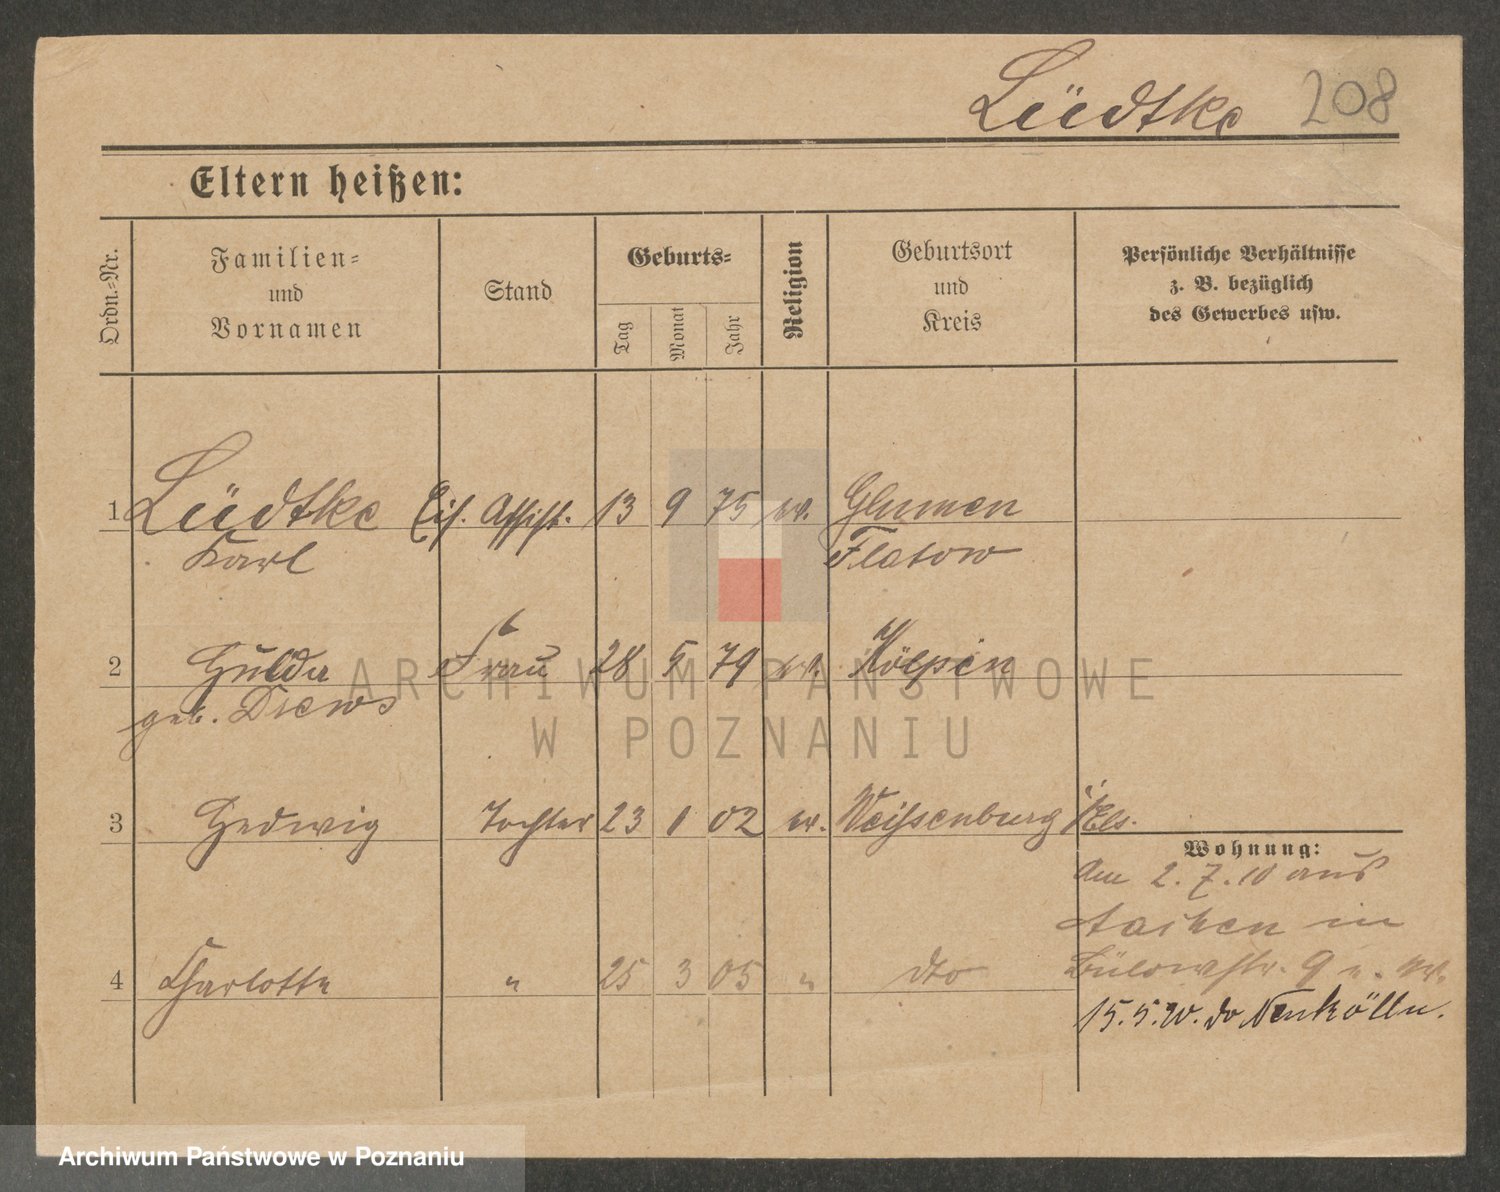 Lüdtke 208
Eltern heißen:
Ordn.-Nr.
Familien-
und
Vornamen
Stand
Geburts-
Tag
Monat
Jahr
Religion
Geburtsort
und
Kreis
Persönliche Verhältnisse
z. B. bezüglich
des Gewerbes usw.
1 Lüdtke Eis. Assist. 13 9 75 ev. Glumen
Karl Flatow
2 Hulda Frau 28 5 79 ev. Kölpin
geb. Drews
3 Hedwig Tochter 23 1 02 ev. Weißenburg i/Els.
Wohnung:
Am 2. 7. 10 aus
Aachen in
4 Charlotte " 25 3 05 " dto Bülowstr. 9
15.5.20. do Neukölln.
ARCHIWUM PAŃSTWOWE
W POZNANIU
Archiwum Państwowe w Poznaniu